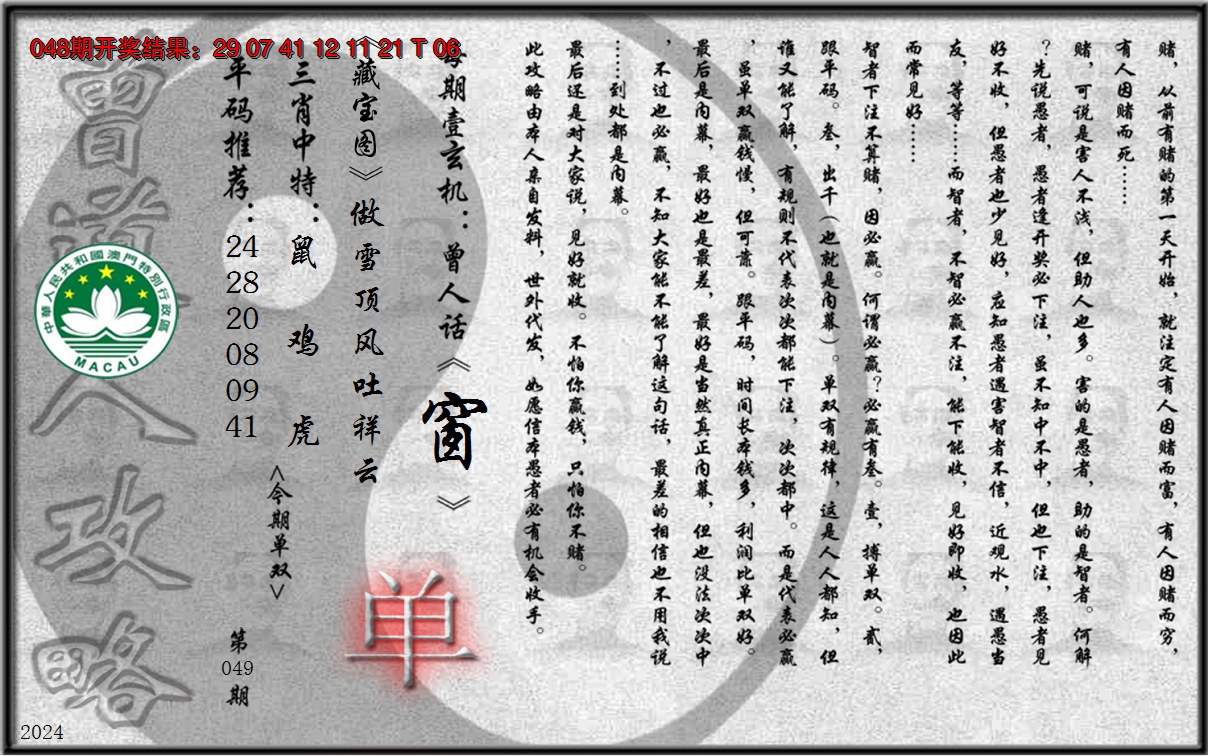 048期开奖结果：29 07 41 12 11 21 T 06
赌，从前有赌的第一天开始，就注定有人因赌而富，有人因赌而穷，
有人因赌而死……
赌，可说是害人不浅，但助人也多。害的是愚者，助的是智者。何解
？先说愚者，愚者逢开奖必下注，虽不知中不中，但也下注，愚者见
好不收，但愚者也少见好，应知愚者遇害智者不信，近观水，遇愚当
友，等等……而智者，不智必赢不注，能下能收，见好即收，也因此
而常见好……
智者下注不算赌，因必赢。何谓必赢？必赢有叁。壹，搏单双。贰，
跟平码。叁，出千（也就是内幕）。单双有规律，这是人人都知，但
谁又能了解，有规则不代表次次都能下注，次次都中。而是代表必赢
，虽单双赢钱慢，但可靠。跟平码，时间长本钱多，利润比单双好。
最后是内幕，最好也是最差，最好是当然真正内幕，但也没法次次中
，不过也必赢，不知大家能不能了解这句话，最差的相信也不用我说
……到处都是内幕。
最后还是对大家说，见好就收。不怕你赢钱，只怕你不赌。
此攻略由本人亲自发料，世外代发，如愿信本愚者必有机会收手。
每期壹玄机：曾人话《窗》
《藏宝图》做雪顶风吐祥云
三肖中特：鼠 鸡 虎
<今期单双>
单
平码推荐：24 28 20 08 09 41
第049期
曾道人攻略
中華人民共和國澳門特別行政區
MACAU
2024